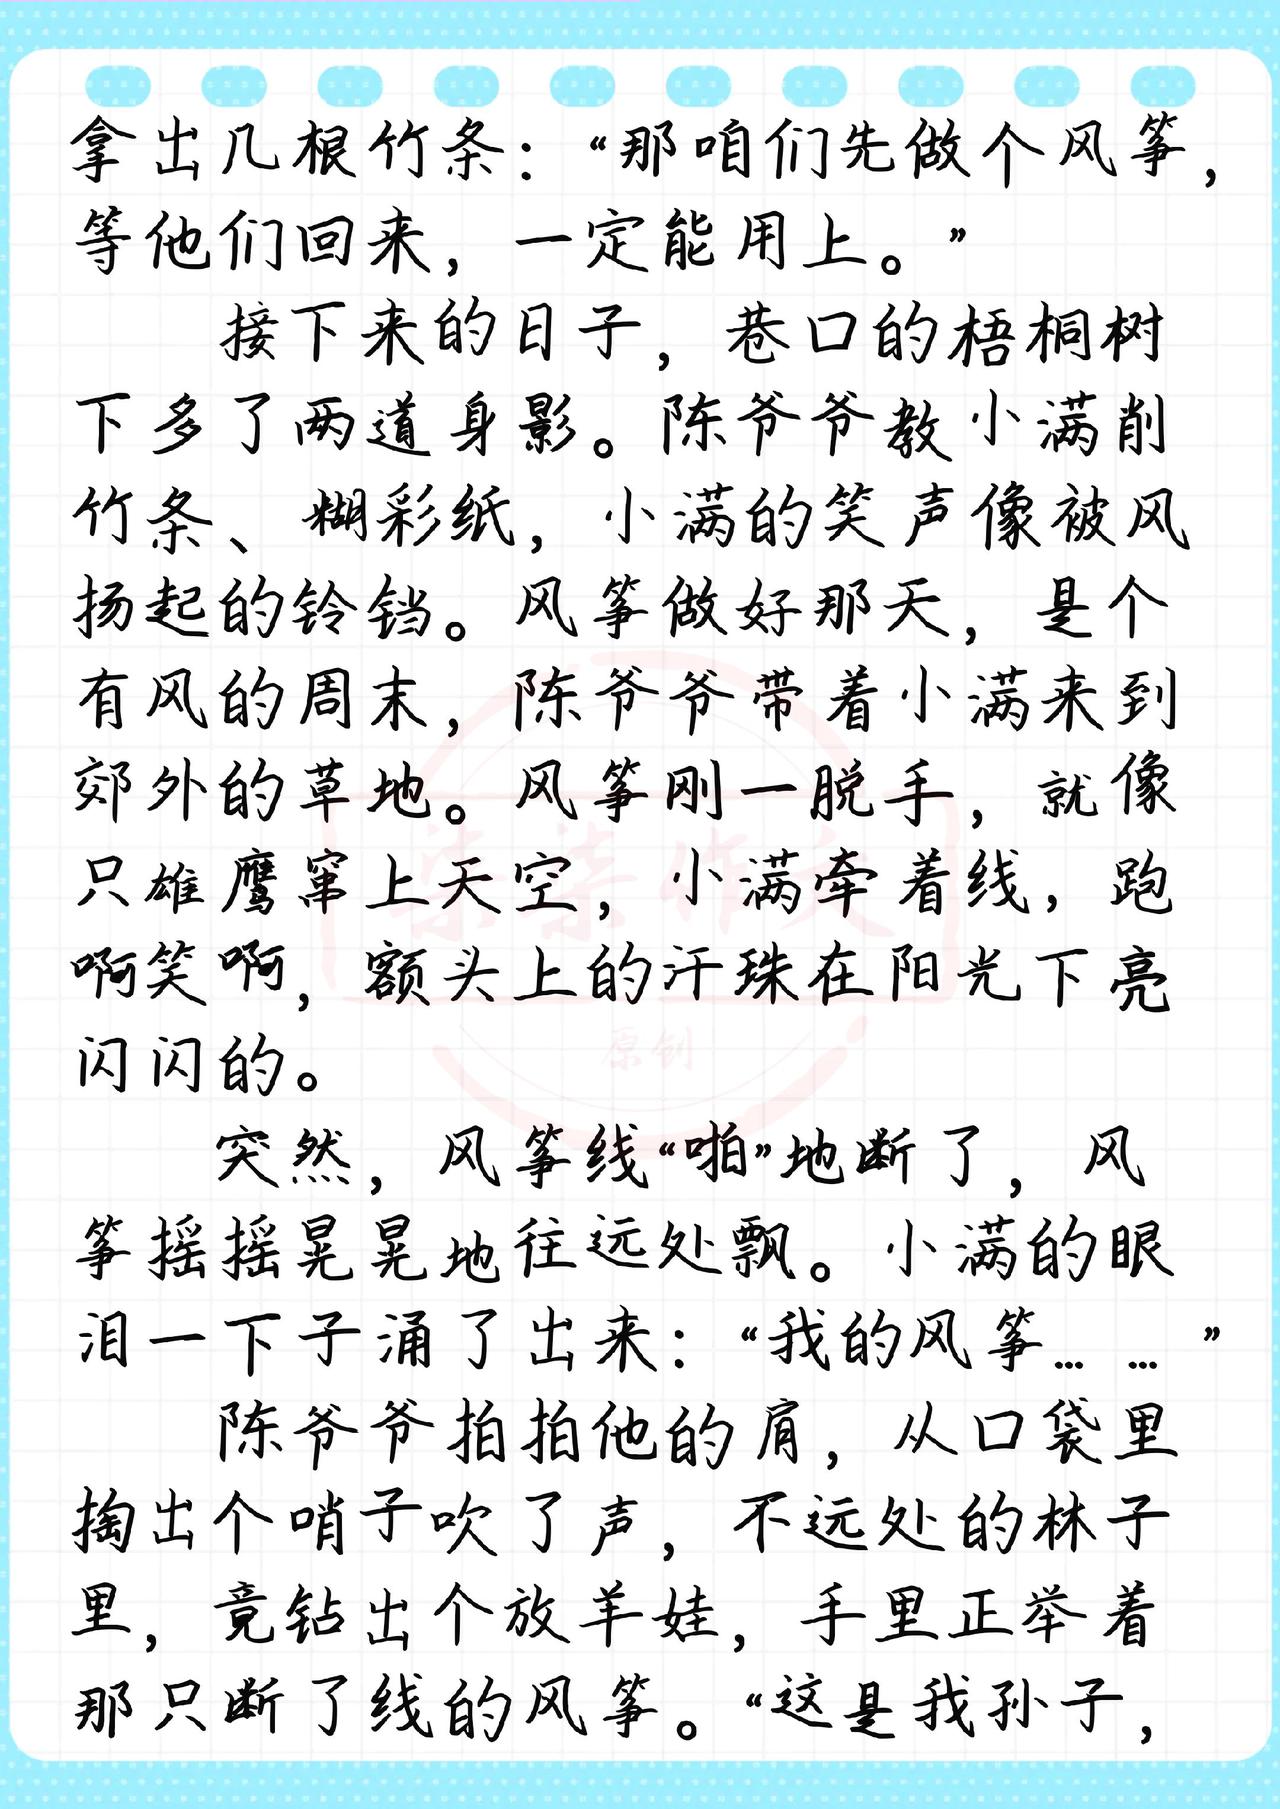 拿出几根竹条：“那咱们先做个风筝，
等他们回来，一定能用上。”
接下来的日子，巷口的梧桐树
下多了两道身影。陈爷爷教小满削
竹条、糊彩纸，小满的笑声像被风
扬起的铃铛。风筝做好那天，是个
有风的周末，陈爷爷带着小满来到
郊外的草地。风筝刚一脱手，就像
只雄鹰窜上天空，小满牵着线，跑
啊笑啊，额头上的汗珠在阳光下亮
闪闪的。
突然，风筝线“啪”地断了，风
筝摇摇晃晃地往远处飘。小满的眼
泪一下子涌了出来：“我的风筝……”
陈爷爷拍拍他的肩，从口袋里
掏出个哨子吹了声，不远处的林子
里，竟钻出个放羊娃，手里正举着
那只断了线的风筝。“这是我孙子，
柒柒作文
原创